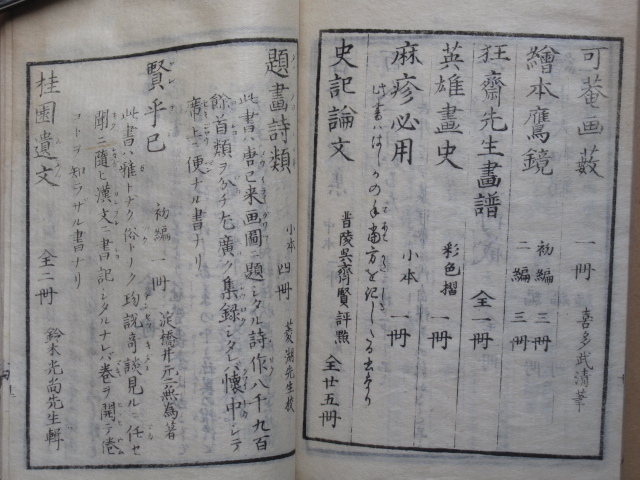 可菴画薮 一冊 喜多武清筆
繪本鷹鏡 初編 三冊 二編 三冊
狂齋先生畫譜 全一冊
英雄畫史 彩色摺 一冊
麻疹必用 小本 一冊
此書ハはしかの手當方を記したる書なり
史記論文 晋陵呉齊賢評點 全廿五冊
題畫詩類 小本 四冊 菱湖先生抄
此書ハ唐已来画圖ニ題シタル詩作八千九百
餘首類ヲ分チ尤廣ク集録シタレバ懐中シテ
席上ニ便ナル書ナリ
賢乎已 初編 一冊 淀橋井元二無為著
此書ハ雅トナク俗トナク珎説奇談見ルニ任セ
聞ニ隨ヒ漢文ニ書記シタルナレバ巻ヲ開テ倦
コトヲ知ラサル書ナリ
桂園遺文 全二冊 鈴木光尚先生輯